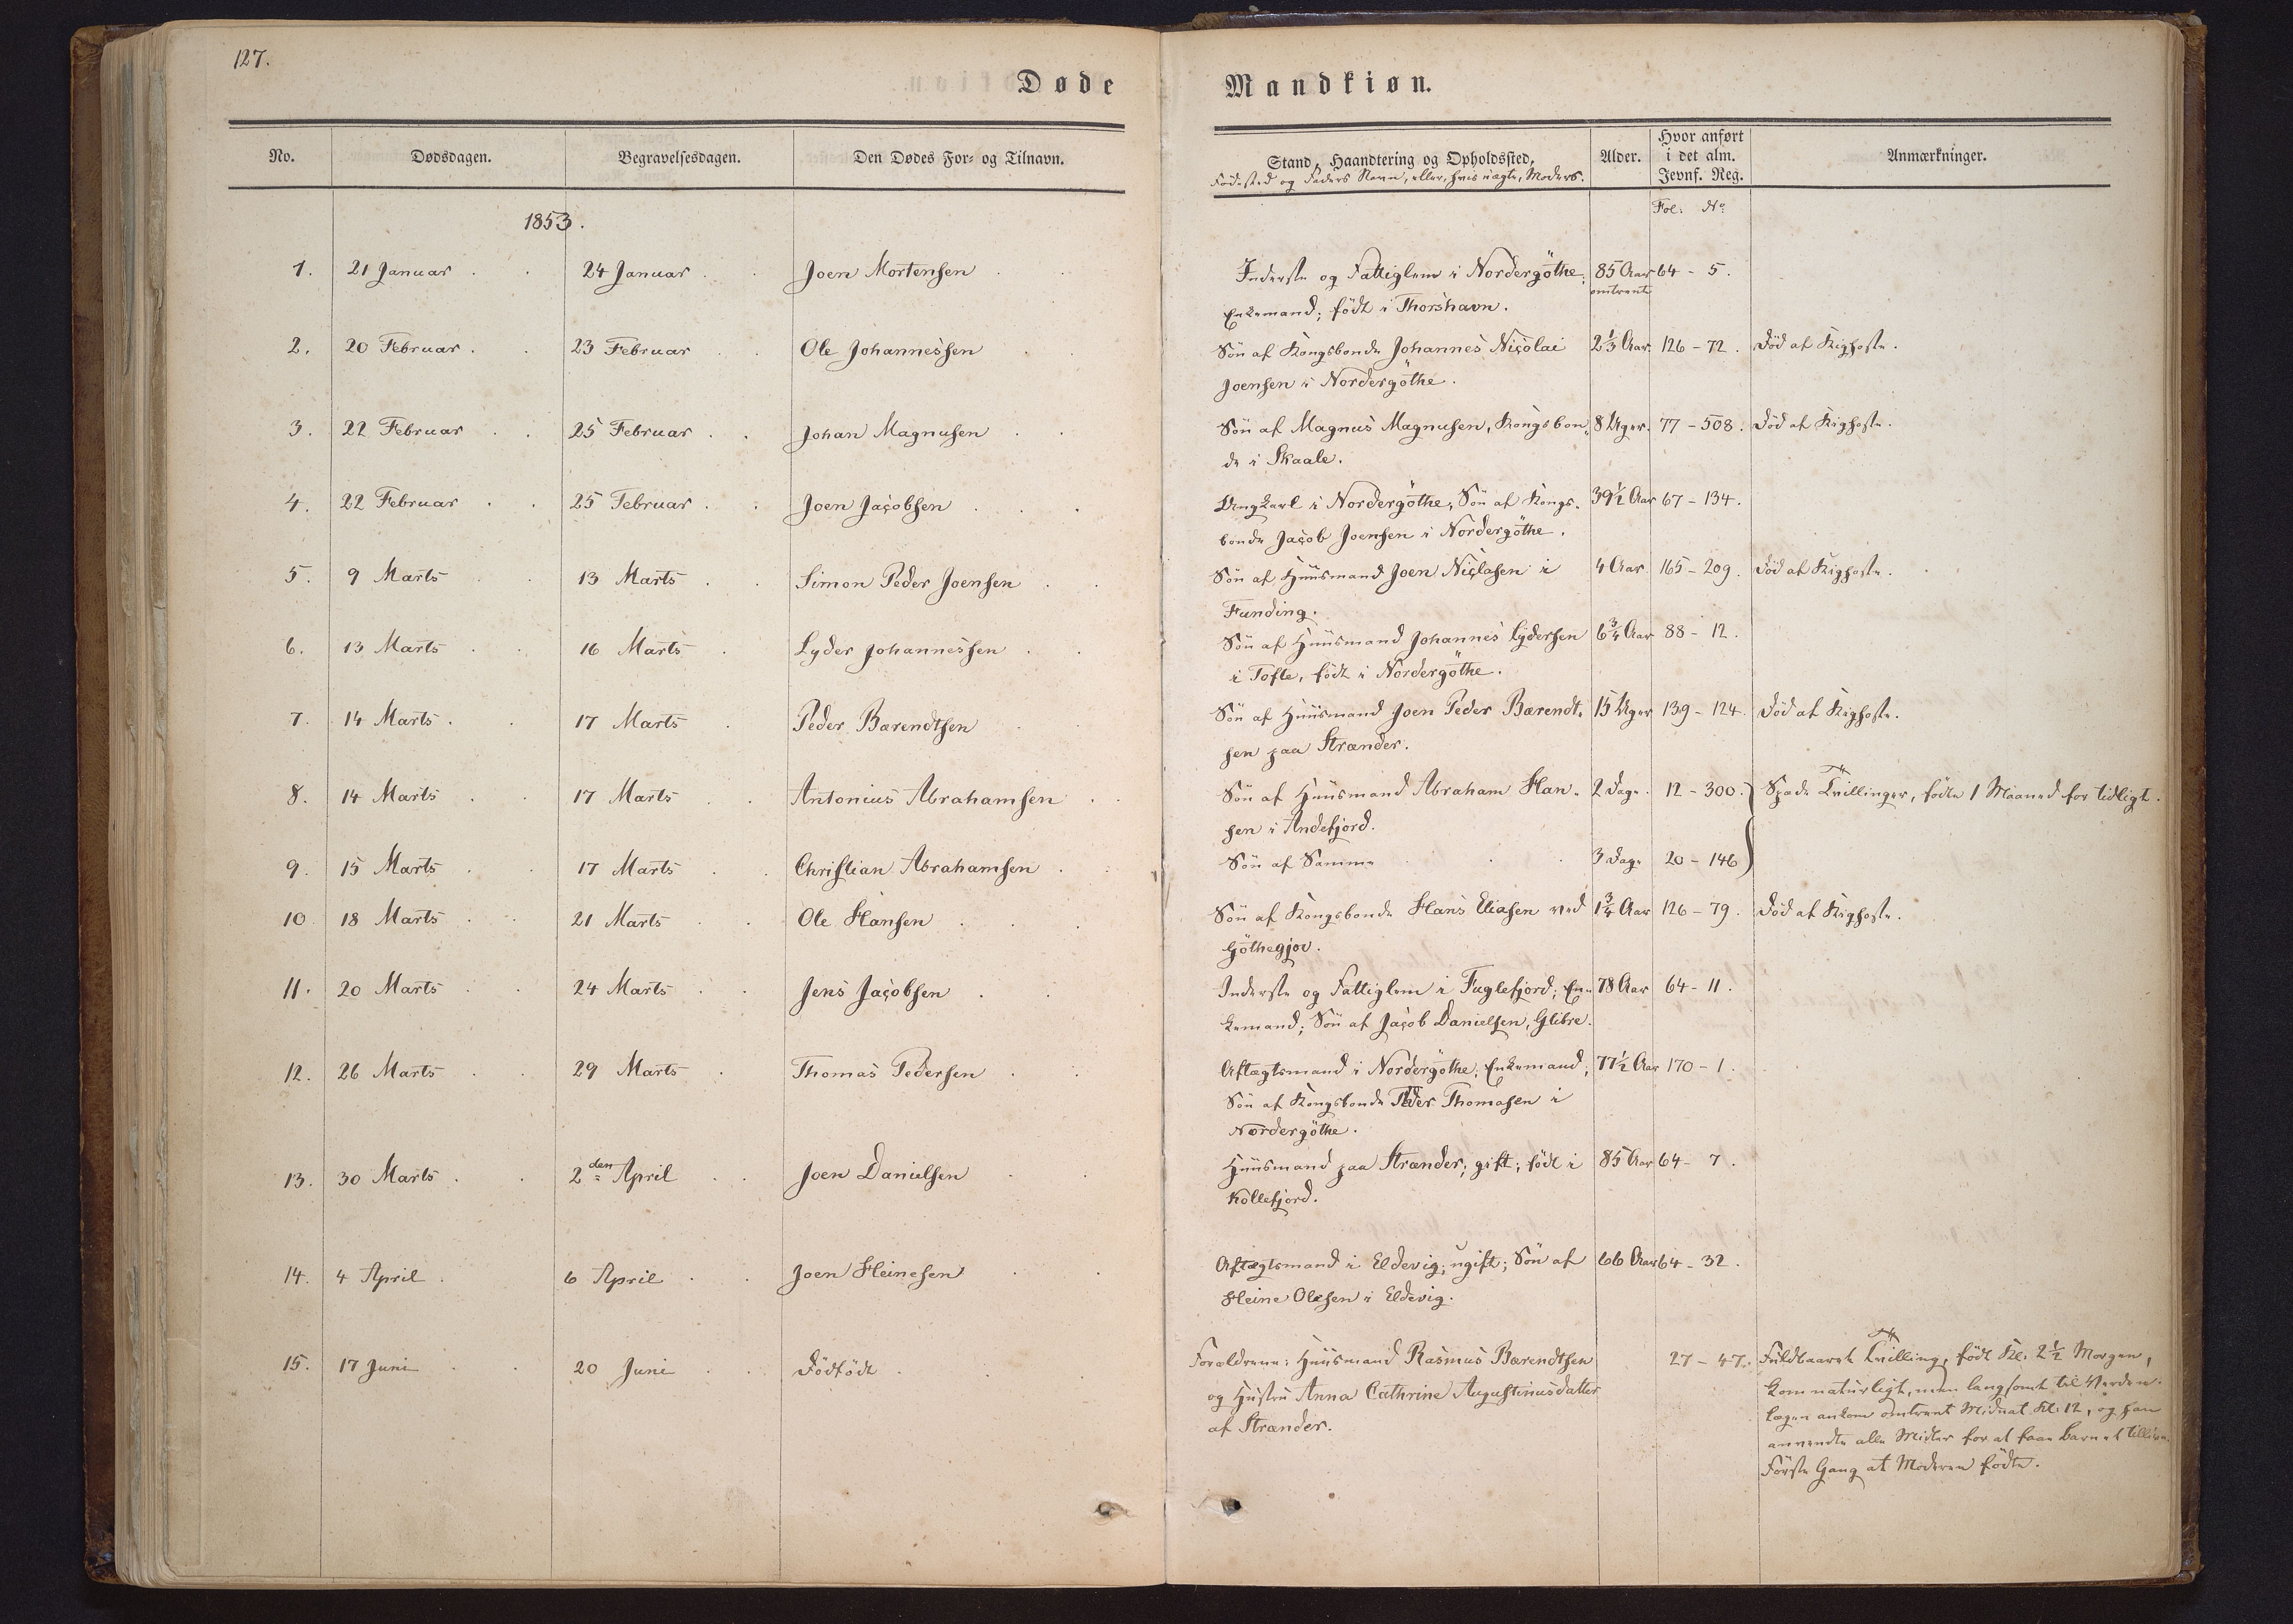 127.
Døde Mandkiøn.
No. Dødsdagen. Begravelsesdagen. Den Dødes For- og Tilnavn. Stand, Haandtering og Opholdssted, Alder. Hvor anført i det alm. Jevnf. Reg. Anmærkninger.
Fødested og Faders Navn, eller, hvis uægte, Moders.
Fol: No:
1853.
1. 21 Januar 24 Januar Joen Mortensen Inderste og Fattiglem i Nordergøthe; 85 Aar 64 - 5.
omtrent
Enkemand; født i Thorshavn.
2. 20 Februar 23 Februar Ole Johannessen Søn af Kongsbonde Johannes Nicolai 2⅓ Aar. 126 - 72. Død af Kighoste.
Joensen i Nordergøthe.
3. 22 Februar 25 Februar Johan Magnusen Søn af Magnus Magnusen, Kongsbon- 8 Uger. 77 - 508. Død af Kighoste.
de i Skaale.
4. 22 Februar 25 Februar Joen Jacobsen Ungkarl i Nordergøthe, Søn af Kongs- 39½ Aar 67 - 134.
bonde Jacob Joensen i Nordergøthe.
5. 9 Marts 13 Marts Simon Peder Joensen Søn af Huusmand Joen Niclasen i 4 Aar. 165 - 209. Død af Kighoste.
Funding.
6. 13 Marts 16 Marts Lyder Johannessen Søn af Huusmand Johannes Lydersen 6¾ Aar 88 - 12.
i Tofte, født i Nordergøthe.
7. 14 Marts. 17 Marts Peder Barendtsen Søn af Huusmand Joen Peder Barendt- 15 Uger 139 - 124. Død af Kighoste.
sen paa Strænder.
8. 14 Marts 17 Marts Antonius Abrahamsen Søn af Huusmand Abraham Han- 2 Dage. 12 - 300. Spæde Tvillinger, fødte 1 Maaned for tidligt.
sen i Andefjord.
9. 15 Marts 17 Marts Christian Abrahamsen Søn af Samme 3 Dage 20 - 146
10 18 Marts 21 Marts Ole Hansen Søn af Kongsbonde Hans Eliasen ved 1¾ Aar 126 - 79. Død af Kighoste.
Gøthegjov.
11. 20 Marts 24 Marts Jens Jacobsen Inderste og Fattiglem i Fuglefjord; En- 78 Aar 64 - 11.
kemand; Søn af Jacob Danielsen, Glibre.
12. 26 Marts 29 Marts Thomas Pedersen Aftægtsmand i Nordergøthe; Enkemand; 77½ Aar 170 - 1.
Søn af Kongsbonde Peder Thomasen i
Nordergøthe.
13. 30 Marts 2den April Joen Danielsen Huusmand paa Strænder; gift; født i 85 Aar 64 - 7.
Kollefjord.
14. 4 April 6 April Joen Heinesen Aftægtsmand i Eldevig; ugift; Søn af 66 Aar 64 - 32.
Heine Olesen i Eldevig.
15. 17 Juni 20 Juni Dødfødt Forældrene: Huusmand Rasmus Barendtsen 27 - 47. Fuldbaaret Tvilling, født Kl. 2½ Morgen,
og Hustru Anna Cathrine Augustinusdatter kom naturligt, men langsomt til Verden.
af Strænder. Lægen ankom omtrent Midnat Kl. 12, og han
anvendte alle Midler for at faae Barnet tillive.
Første Gang at Moderen fødte.